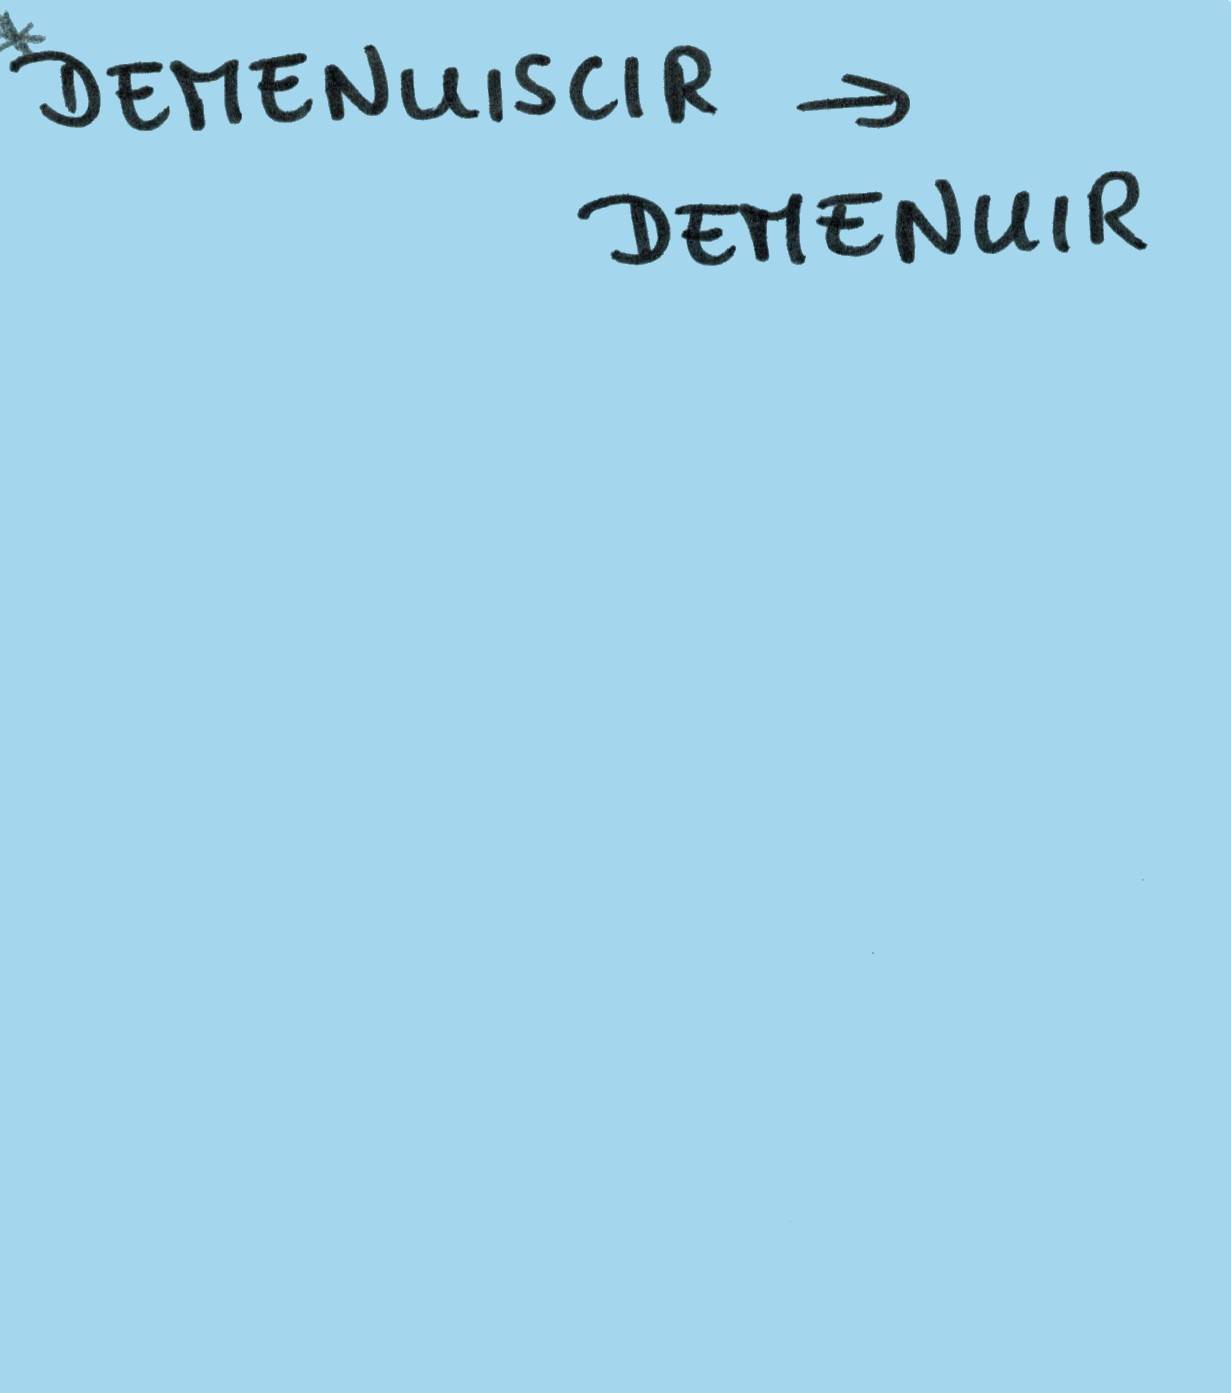 *DEMENUISCIR →
DEMENUIR